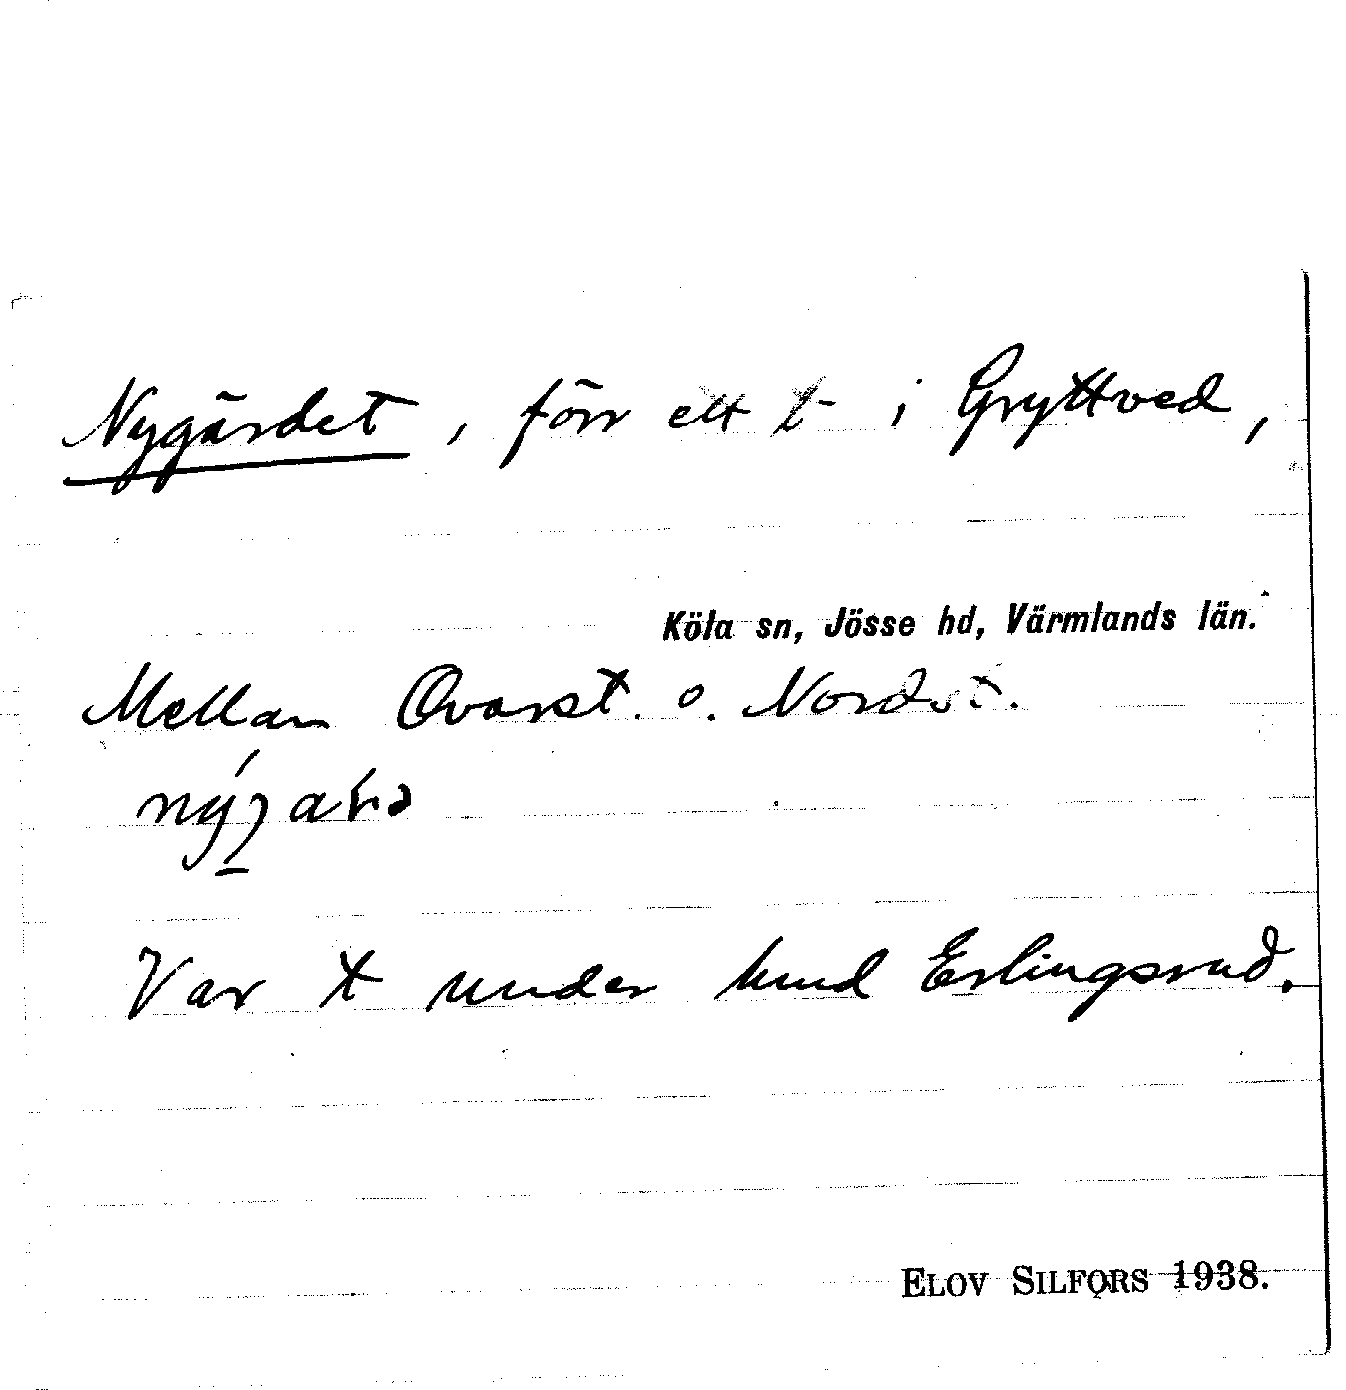 Nygärdet, förr ett t i Gryttved,
Köla sn, Jösse hd, Värmlands län.
Mellan Ovarst. o. Nordst.
Var t under hmd Erlingsrud.
ELOV SILFORS 1938.